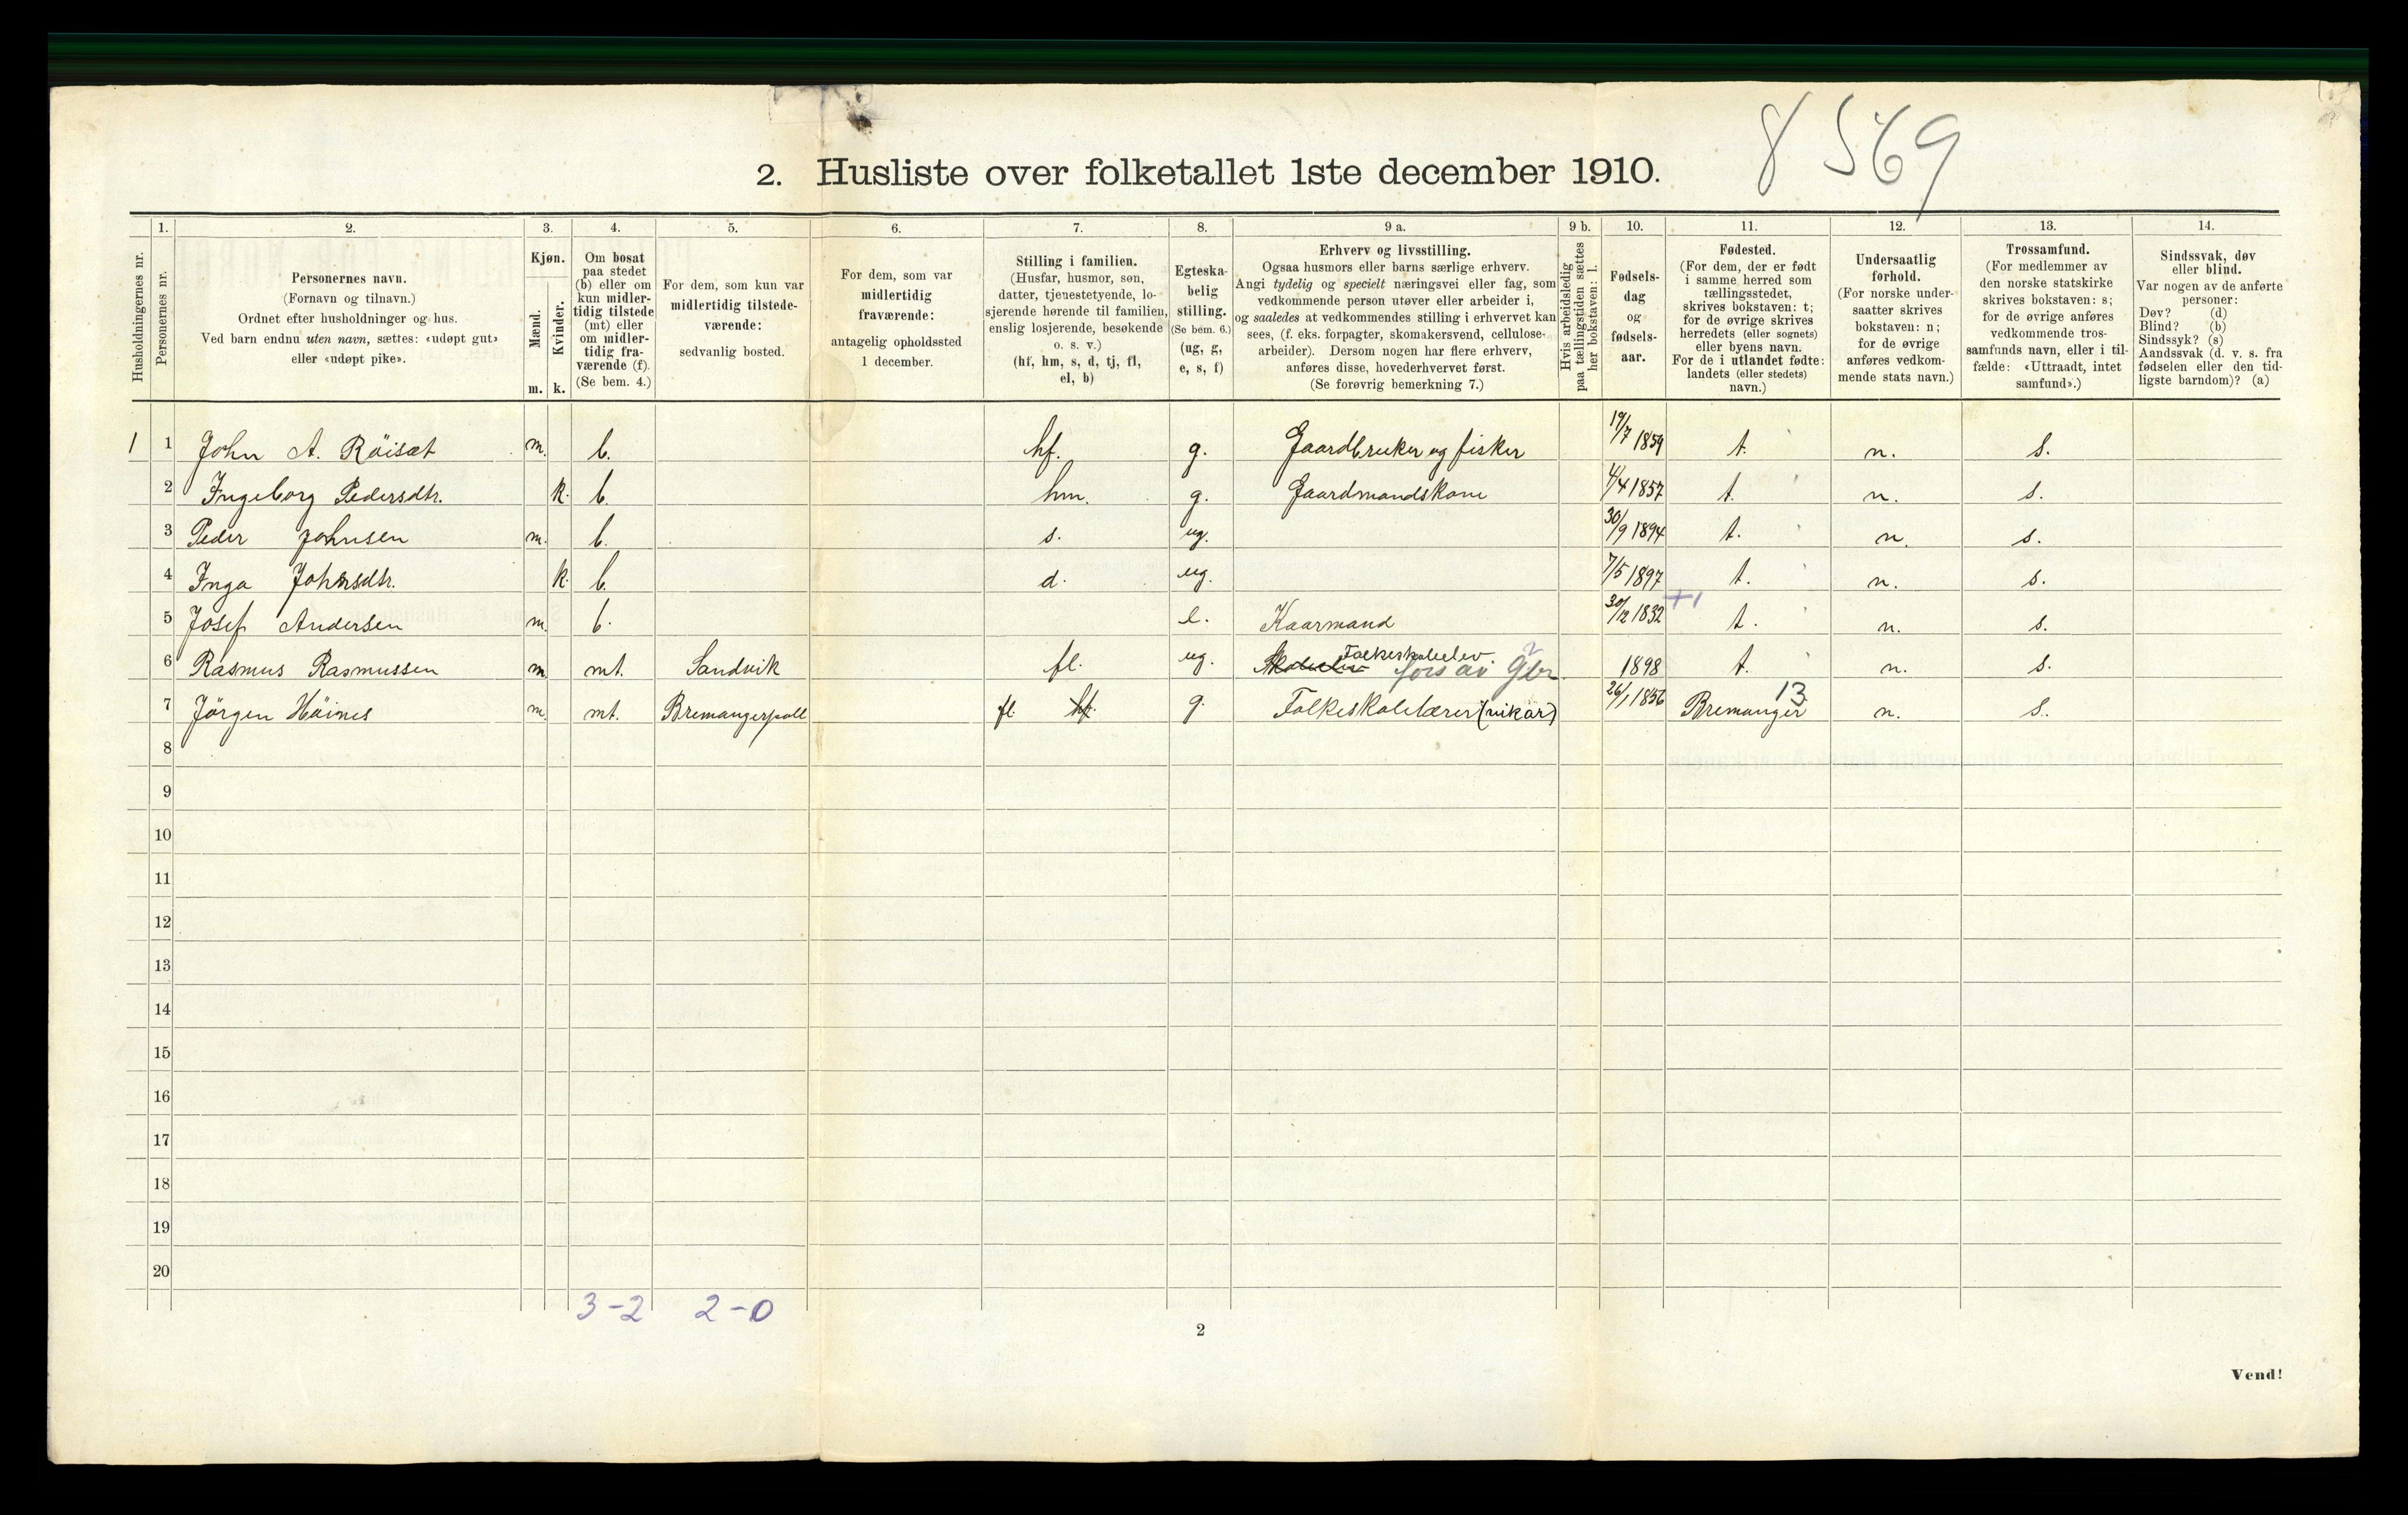 8 569
2. Husliste over folketallet 1ste december 1910.
Husholdningernes nr.
1.
Personernes nr.
2.
Personernes navn.
(Fornavn og tilnavn.)
Ordnet efter husholdninger og hus.
Ved barn endnu uten navn, sættes: «udøpt gut»
eller «udøpt pike».
3.
Kjøn.
Mænd.
Kvinder.
m. k.
4.
Om bosat
paa stedet
(b) eller om
kun midler-
tidig tilstede
(mt) eller
om midler-
tidig fra-
værende (f).
(Se bem. 4.)
5.
For dem, som kun var
midlertidig tilstede-
værende:
sedvanlig bosted.
6.
For dem, som var
midlertidig
fraværende:
antagelig opholdssted
1 december.
7.
Stilling i familien.
(Husfar, husmor, søn,
datter, tjenestetyende, lo-
sjerende hørende til familien,
enslig losjerende, besøkende
o. s. v.)
(hf, hm, s, d, tj, fl,
el, b)
8.
Egteska-
belig
stilling.
(Se bem. 6.)
(ug, g,
e, s, f)
9 a.
Erhverv og livsstilling.
Ogsaa husmors eller barns særlige erhverv.
Angi tydelig og specielt næringsvei eller fag, som
vedkommende person utøver eller arbeider i,
og saaledes at vedkommendes stilling i erhvervet kan
sees, (f. eks. forpagter, skomakersvend, cellulose-
arbeider). Dersom nogen har flere erhverv,
anføres disse, hovederhvervet først.
(Se forøvrig bemerkning 7.)
9 b.
Hvis arbeidsledig
paa tællingstiden sættes
her bokstaven: l.
10.
Fødsels-
dag
og
fødsels-
aar.
11.
Fødested.
(For dem, der er født
i samme herred som
tællingsstedet,
skrives bokstaven: t;
for de øvrige skrives
herredets (eller sognets)
eller byens navn.
For de i utlandet fødte:
landets (eller stedets)
navn.)
12.
Undersaatlig
forhold.
(For norske under-
saatter skrives
bokstaven: n;
for de øvrige
anføres vedkom-
mende stats navn.)
13.
Trossamfund.
(For medlemmer av
den norske statskirke
skrives bokstaven: s;
for de øvrige anføres
vedkommende tros-
samfunds navn, eller i til-
fælde: «Uttraadt, intet
samfund».)
14.
Sindssvak, døv
eller blind.
Var nogen av de anførte
personer:
Døv? (d)
Blind? (b)
Sindssyk? (s)
Aandssvak (d. v. s. fra
fødselen eller den tid-
ligste barndom)? (a)
1 1 John A. Röisæt m. b. hf. g. Gaardbruker og fisker 19/7 1859 t. n. s.
2 Ingeborg Pedersdtr. k. b. hm. g. Gaardmandskone 4/4 1857 t. n. s.
3 Peder Johnsen m. b. s. ug. 30/9 1894 t. n. s.
4 Inga Johnsdtr. k. b. d. ug. 7/5 1897 t. n. s.
5 Josef Andersen m. b. e. Kaarmand 30/12 1832 t. n. s.
6 Rasmus Rasmussen m. mt. Sandvik fl. ug. Skoleelev Folkeskoleelev. fors av Gbr 1898 t. n. s.
7 Jörgen Höines m. mt. Bremangerpoll fl hf. g. Folkeskolelærer (vikar) 26/1 1856 Bremanger 13 n. s.
8
9
10
11
12
13
14
15
16
17
18
19
20
3-2 2-0
2
Vend!